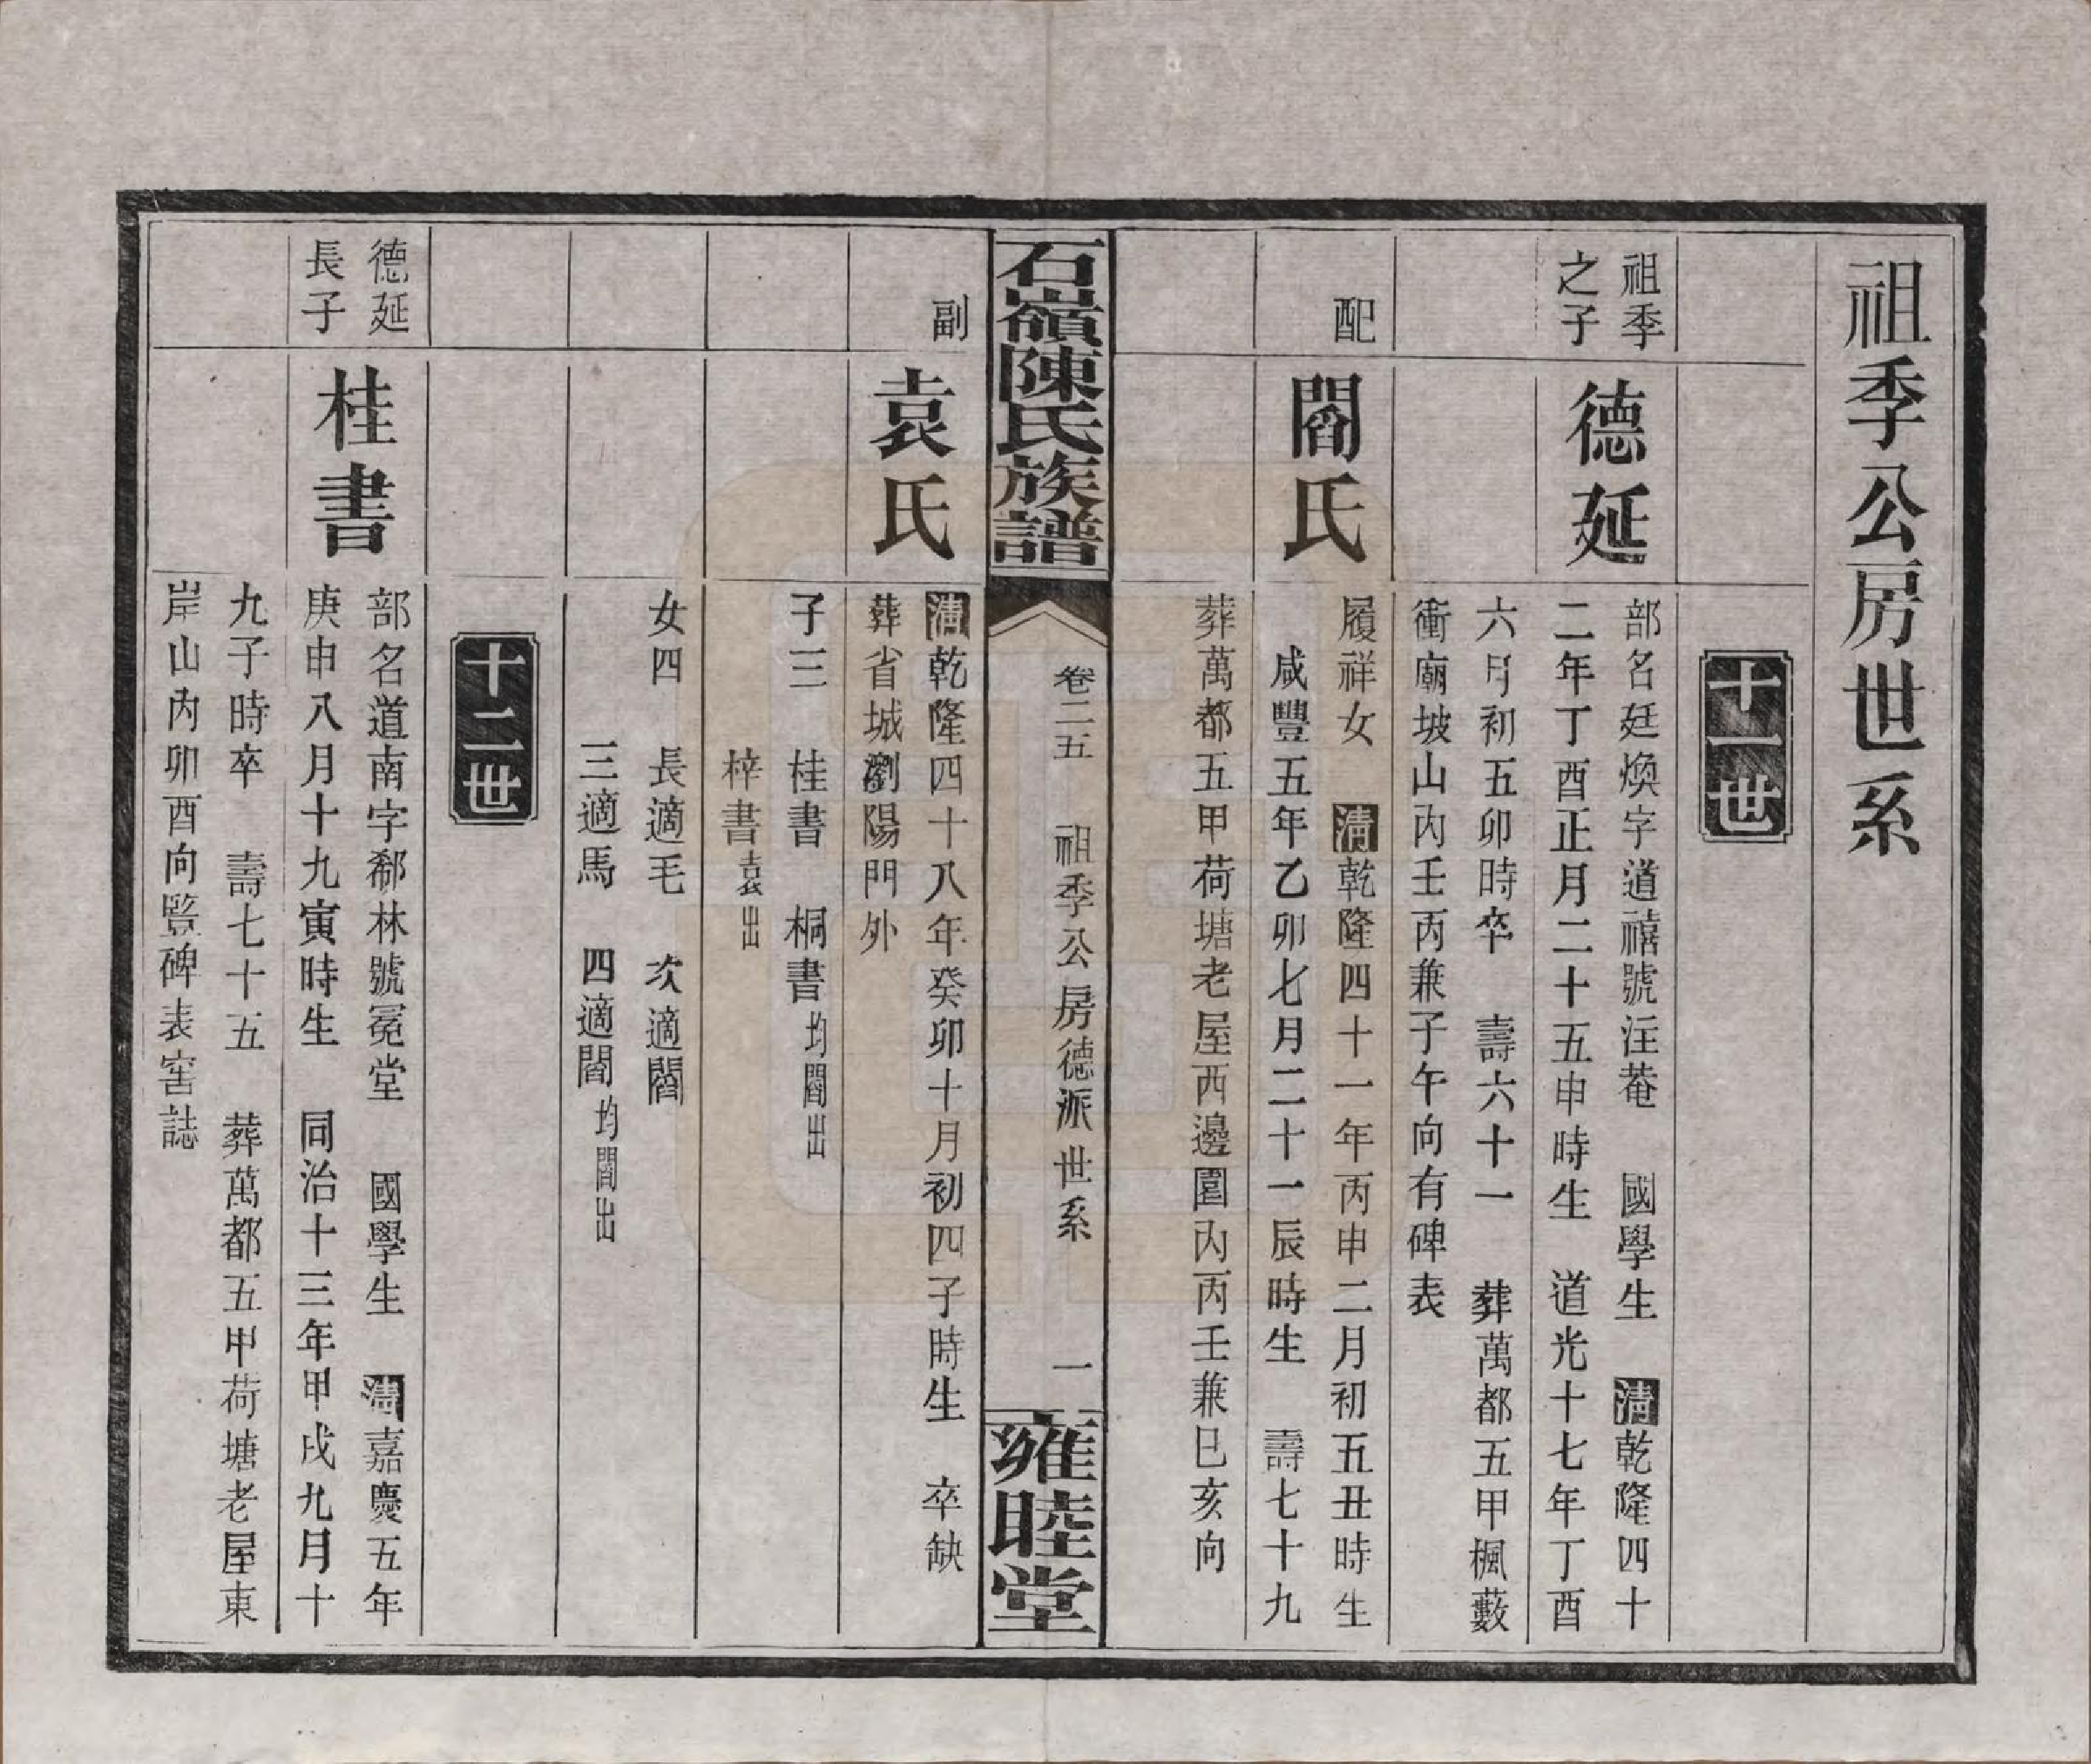 祖季公房世系
十一世
祖季
之子
德延
部名廷煥字道禧號注菴　國學生　清乾隆四十
二年丁酉正月二十五申時生　道光十七年丁酉
六月初五卯時卒　壽六十一　葬萬都五甲楓藪
衝廟坡山內壬丙兼子午向有碑表
配
閻氏
履祥女　清乾隆四十一年丙申二月初五丑時生
咸豐五年乙卯七月二十一辰時生　壽七十九
葬萬都五甲荷塘老屋西邊園內丙壬兼巳亥向
石嶺陳氏族譜
卷二五　祖季公房德派世系　一
雍睦堂
副
袁氏
清乾隆四十八年癸卯十月初四子時生　卒缺
葬省城瀏陽門外
子三　桂書　桐書均閻出
梓書袁出
女四　長適毛　次適閻
三適馬　四適閻均閻出
十二世
德延
長子
桂書
部名道南字郗林號冕堂　國學生　清嘉慶五年
庚申八月十九寅時生　同治十三年甲戌九月十
九子時卒　壽七十五　葬萬都五甲荷塘老屋東
岸山內卯酉向監碑表窖誌